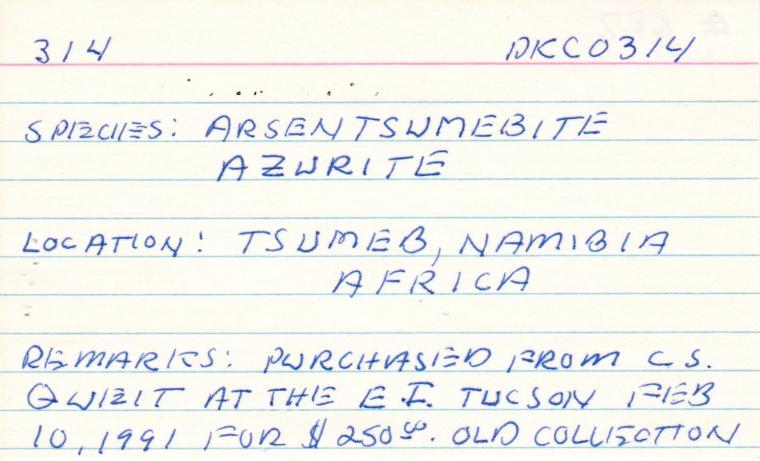 314 DKC0314
SPECIES: ARSENTSUMEBITE
AZURITE
LOCATION: TSUMEB, NAMIBIA
AFRICA
REMARKS: PURCHASED FROM C.S.
QWEIT AT THE E.I. TUCSON FEB
10, 1991 FOR $ 250⁰⁰. OLD COLLECTION